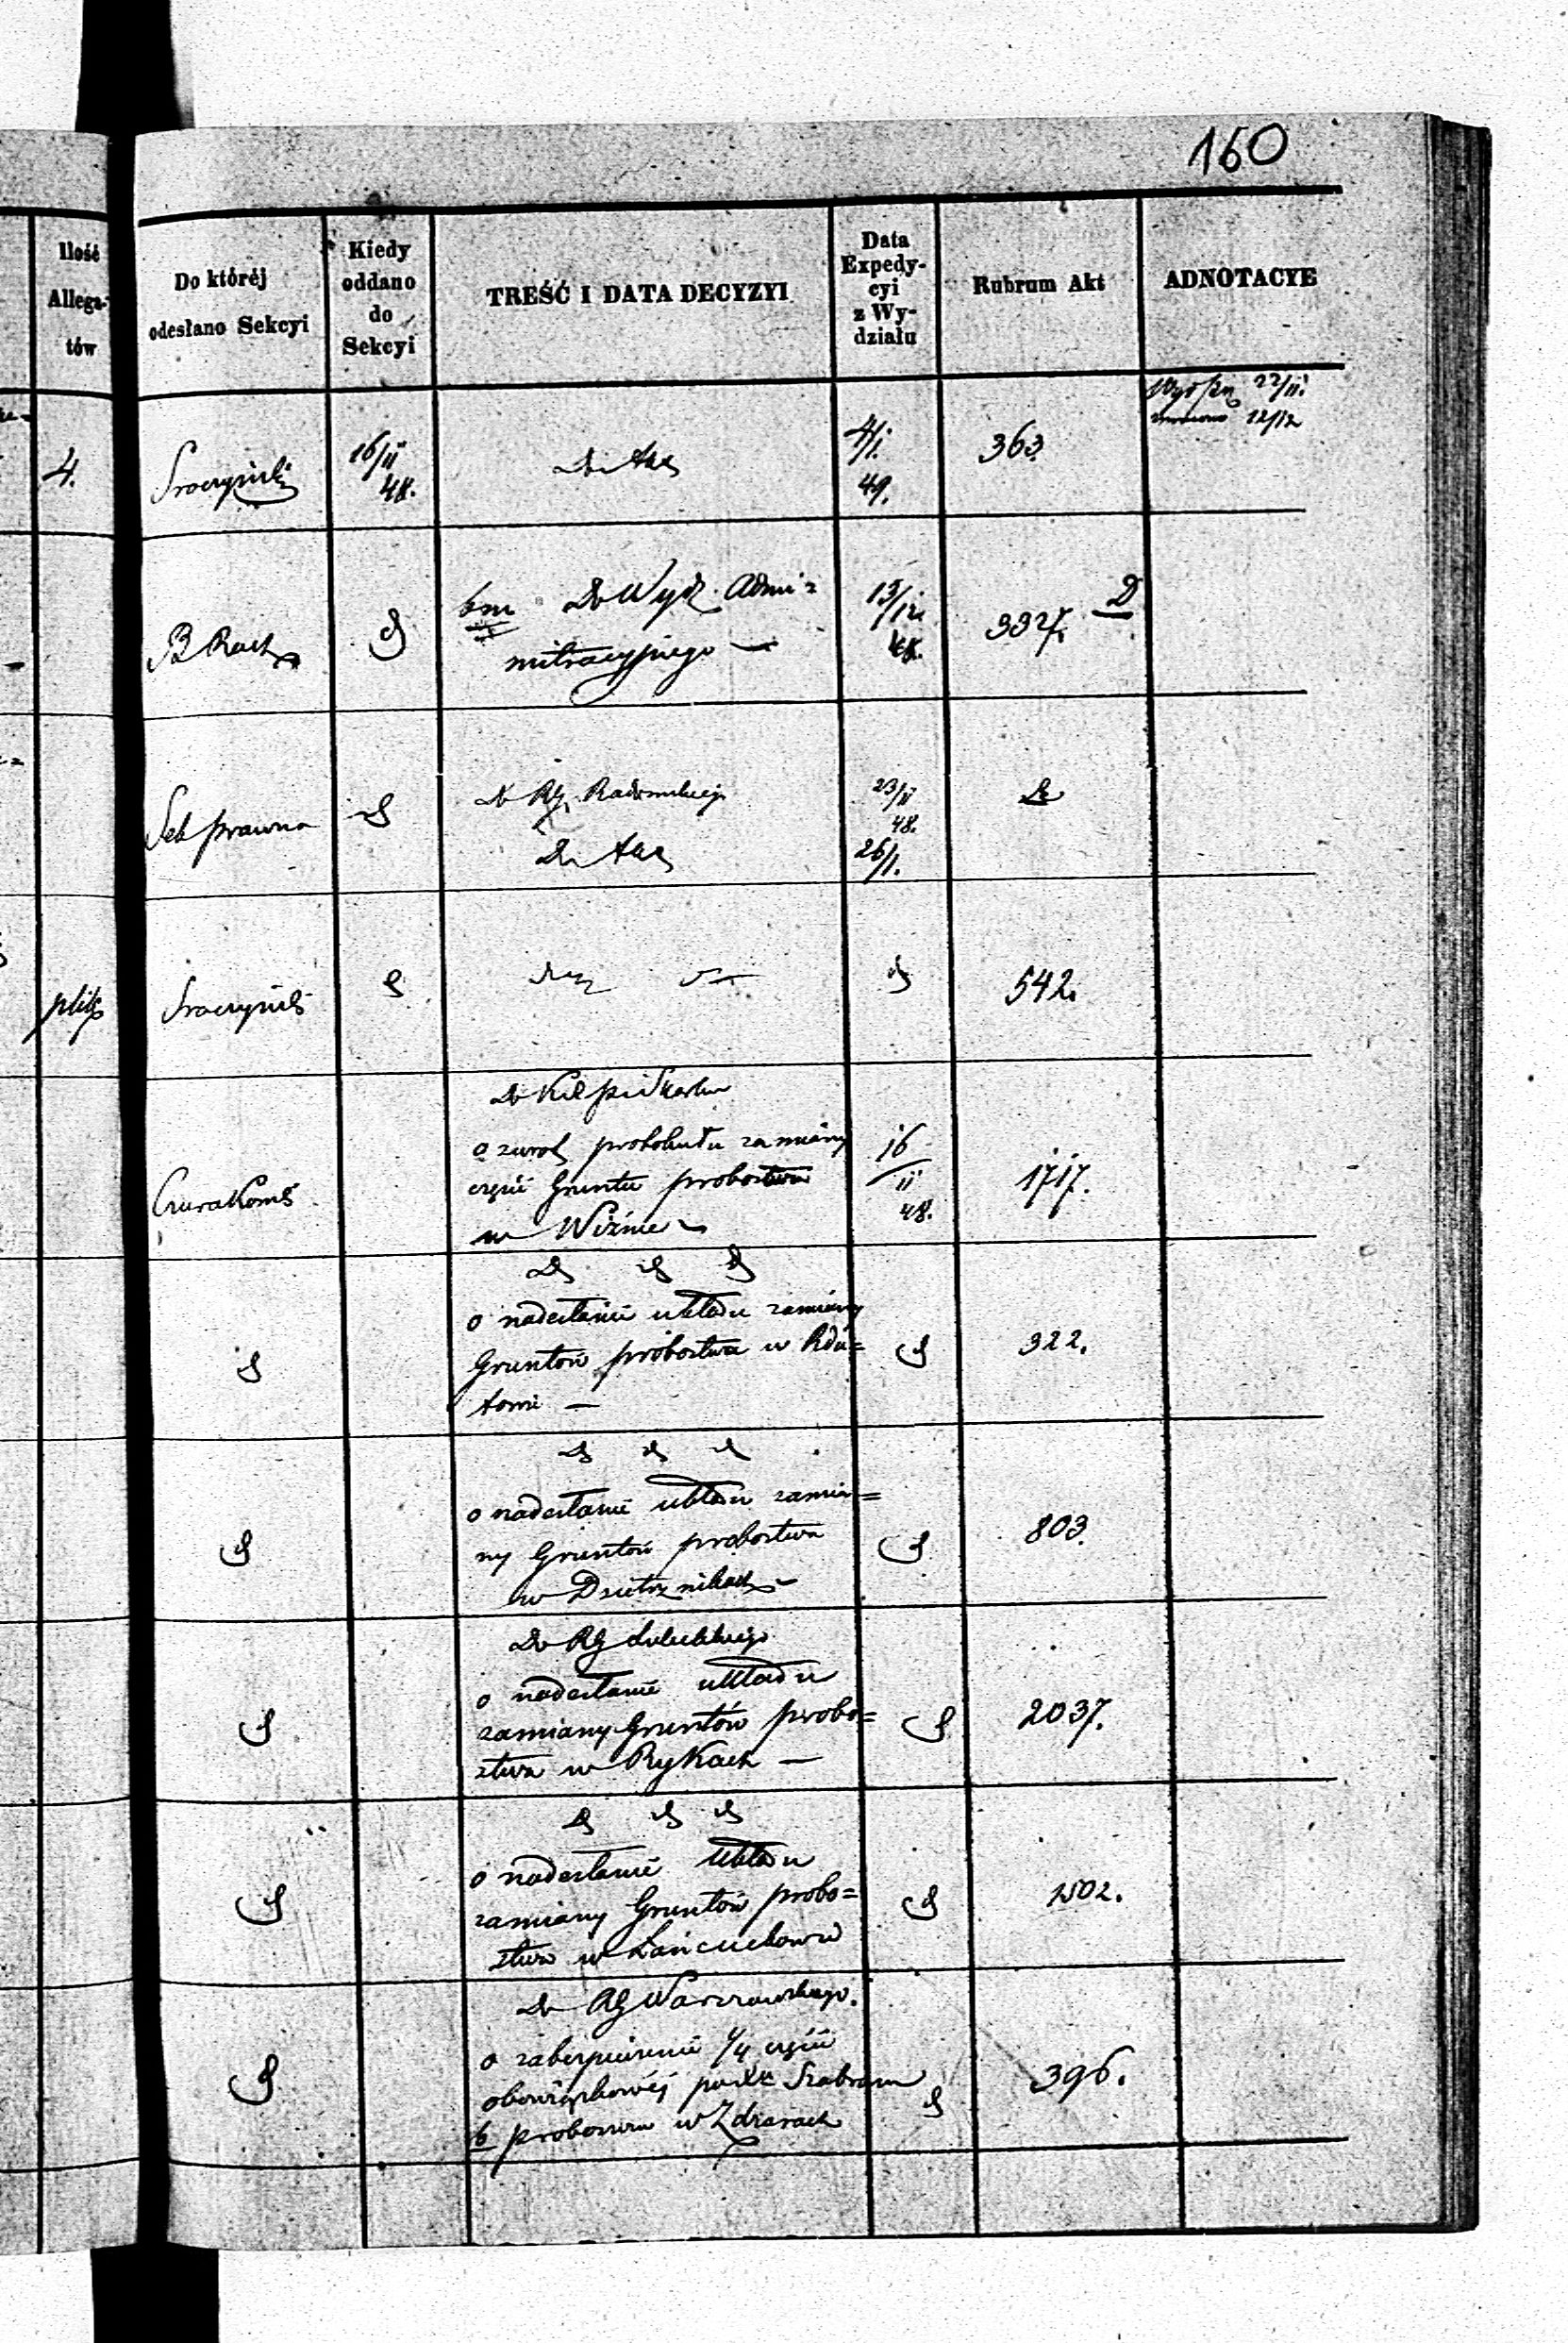 160
Ilość
Allega-
tów
Do któréj
odesłano Sekcyi
Kiedy
oddano
do
Sekcyi
TREŚĆ I DATA DECYZYI
Data
Expedy-
cyi
z Wy-
działu
Rubrum Akt
ADNOTACYE
22/11.
12/12
4.
16/11
48.
Do Akt
4/1.
49.
363.
B Rach
Do Wydz. Admi=
nistracyjnego —
13/12
48.
3327.
D
Sek prawna
Do RG. Radomskiego
Do Akt
23/11
48.
26/1.
plik
542.
Do
o zwrot protokułu zamiany
części Gruntu probostwa
w Wiźnie
16
11
48.
1717.
o nadesłanie układu zamiany
Gruntów probostwa w Rdu=
towie —
322.
o nadesłanie układu zamia=
ny Gruntów probostwa
w Dzietrznikach —
803.
Do RG Lubelskiego
o nadesłanie układu
zamiany Gruntów probo=
stwa w Rykach —
2037.
o nadesłanie układu
zamiany Gruntów probo=
stwa w Łańcuchowie
1502.
Do RG Warszawskiego.
o zabezpieczenie 1/4 części
obowiązkowéj
w Zdzarach
396.